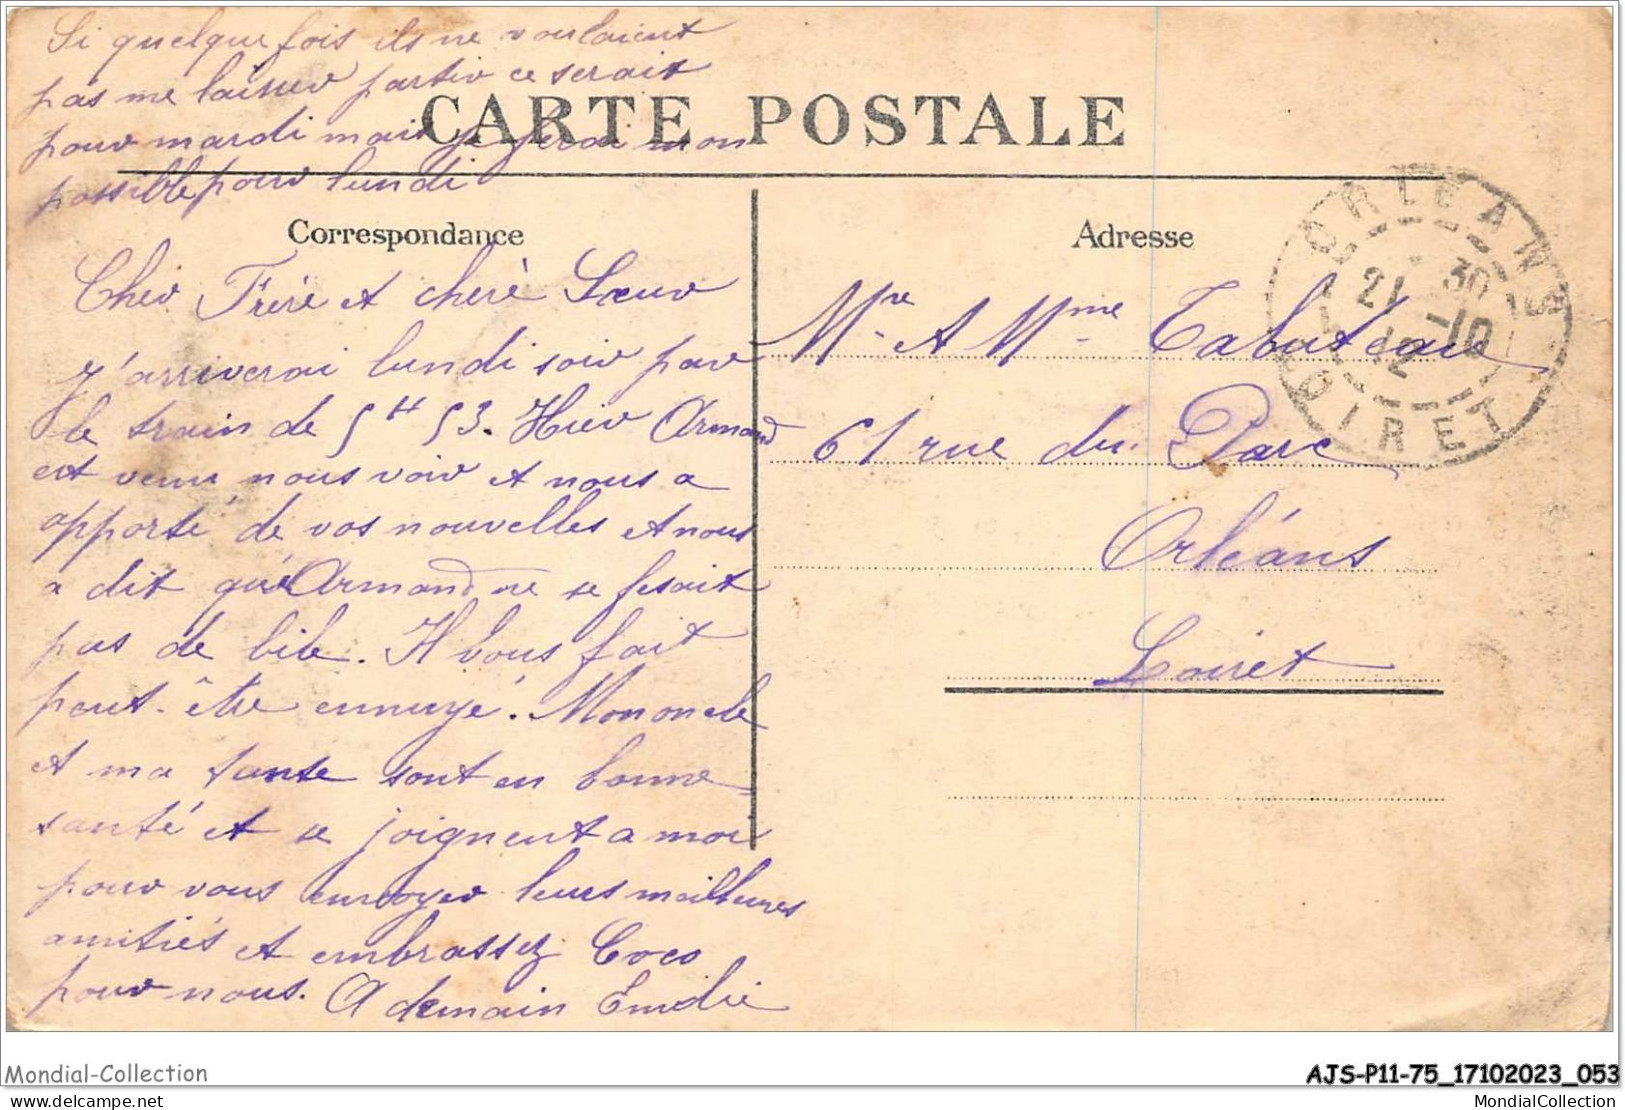 Si quelque fois ils ne voulaient
pas me laisser partir ce serait
pour mardi mais je ferai mon
possible pour lundi
CARTE POSTALE
Correspondance
Cher Frère et chère Sœur
J'arriverai lundi soir par
le train de 5H 53. Hier Armand
est venu nous voir et nous a
apporté de vos nouvelles et nous
a dit que Armand ne se fesait
pas de bile. Il vous fait
peut-être ennuyé. Mon oncle
et ma tante sont en bonne
santé et se joignent a moi
pour vous envoyer leurs meilleures
amitiés et embrassez Coco
pour nous. A demain Emilie
Adresse
ORLEANS
21 30
-10
12
LOIRET
Mre et Mme Tabuteau
61 rue du Parc
Orléans
Loiret
Mondial-Collection
AJS-P11-75_17102023_053
delcampe.net
MondialCollection